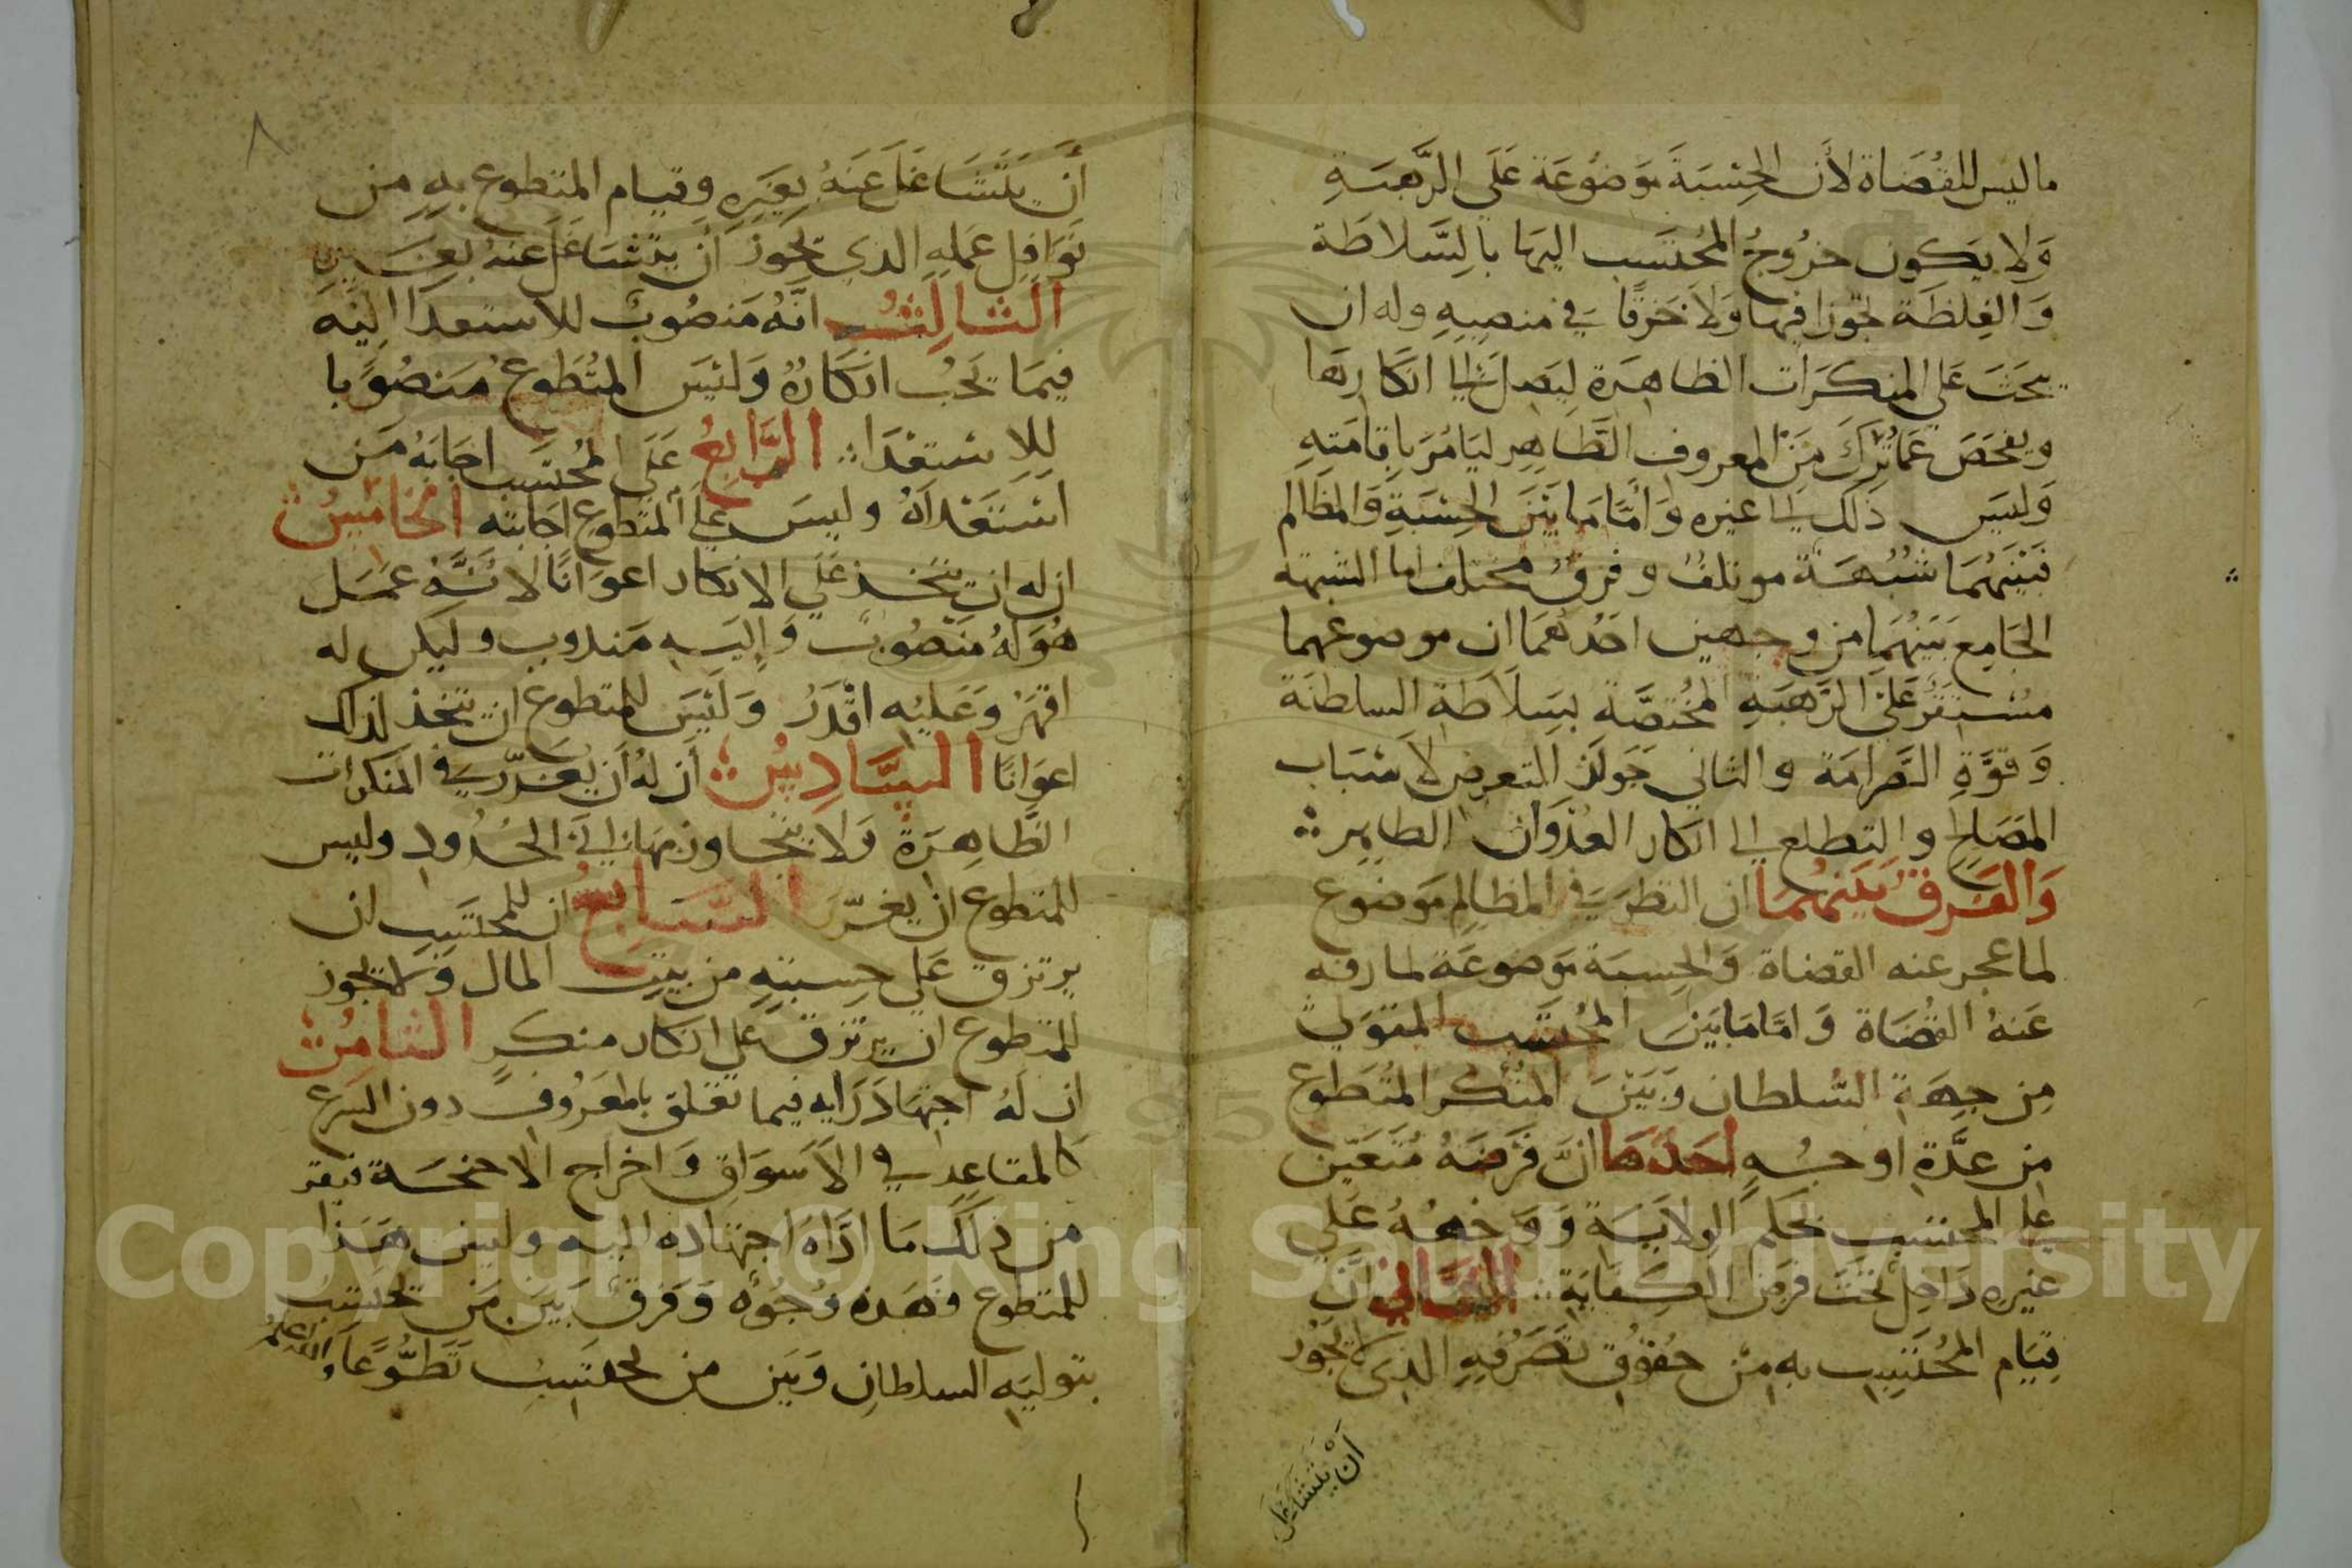 ما ليس للقُضَاة لأن الحِسْبَةَ مَوضُوعَة عَلَى الرَّهبَةِ
وَلا يَكون خرُوجُ المُحتَسب اليهَا بالسَّلاطَة
وَالغِلظَة تجوزا فيهَا وَلا خَرقًا في منصِبِهِ وله ان
يبحَثَ عَلى المنكرَات الظاهِرَة ليَصِل الى انكارِهَا
ويفحَصَ عَمَّا تُرِكَ مَنَ المعروف الظَّاهِر ليَامُرَ بِاقامَتِهِ
وَليسَ ذَلك الى غيره وَأمَّا مَا بَيْنَ الحِسْبَةِ وَالمظالم
فبَيْنَهُمَا شُبْهَة موتلفُ وفرقُ مختلف اما الشبهة
الجَامِع بَيَنهُمَا من وجهين احَدُهُمَا ان موضوعهما
مُسْتَقَر عَلَى الرَهبَةِ المُختصَّة بسَلاطَةِ السلطنَة
وَقوَّةِ الصَّرامَة والثاني جَوَاز التعرض لاسْبَاب
المصَالح والتطلع الى انكار العدْوَان الظاهِر
وَالفَرق بَيْنَهُمَا ان النظر في المظالِم مَوضوع
لما عجز عنه القضاة وَالحِسبَة مَوضوعَة لما رفه
عَنهُ القُضَاة وَامَّا مَا بَيْنَ المُحتَسب المتوَلي
مِن جِهَةِ السُّلطان وَبَيْنَ المُنْكر المُتَطوع
مِن عدَّةِ اوجهٍ احَدهَا انَّ فَرْضَهُ مُتَعَيّن
على المحتسب بحكم الولايَة وَفَرضُهُ عَلى
غيرِهِ دَاخِل تحْتَ فرض الكِفايَة الثَّاني انَّ
قيَام المُحْتَسِب به مِنْ حقوق تصَرُفِهِ الذي لا يجُوز
أنْ يَتشَاغَل
٨
أن يَتَشَاغَلَ عَنهُ بِغيَرِهِ وقيام المتطوع بِهِ مِن
نوَافِل عَملِهِ الذي يجُوز أن يتشَاغَل عنهُ بغيرِهِ
الثالِثُ انَّهُ مَنصُوب للاستعدَا اليْهِ
فيمَا يَجبُ انكَارُهُ وَليْسَ المُتَطوع مَنصُوبا
لِلاسْتعْدَا الرَّابِعُ عَلَى المُحتَسب اجَابَةُ مَن
اسْتَعْدَاهُ وليسَ عَلى المتطوع اجَابته الخامِسُ
ان له ان يتخذ عَلى الانكار اعوَانًا لانَّهُ عَمَل
هُوَ لهُ مَنصُوبٌ وَإليَهِ مَندوب وليَكن له
اقهَرُ وَعَليْهِ اقْدَرُ وَليْسَ للمتطوع ان يتخذ لذلك
اعوَانًا السَّادِسُ أن لهُ أن يعَزّر في المنكرات
الظَّاهِرَة وَلا يتجاوز بهَا الى الحُدُودِ وليس
للمتطوع ان يعزّر السَّابعُ ان للمحتَسِب ان
يرتزق عَلى حِسبتِهِ من بيتِ المال وَلا يجوز
للمتطوع ان يرتزق على انكار منكرٍ الثامِنُ
ان لهُ اجتِهَادَ رَايه فيما تعَلق بالمعَرُوفِ دون الشرع
كالمقاعِدِ في الأسوَاقِ وَاخراج الاجنحَة فيقر
من ذلك مَا ادَّاهُ اجتهَاده اليه وليسَ هَذا
للمتطوع فهَذهِ وُجُوه وَفرقٌ بَيْنَ مَن يحتَسِبُ
بتوليَهِ السلطانِ وَبَين من يحتَسِبُ تَطَوُّعًا وَالله اعلمُ
Copyright © King Saud University